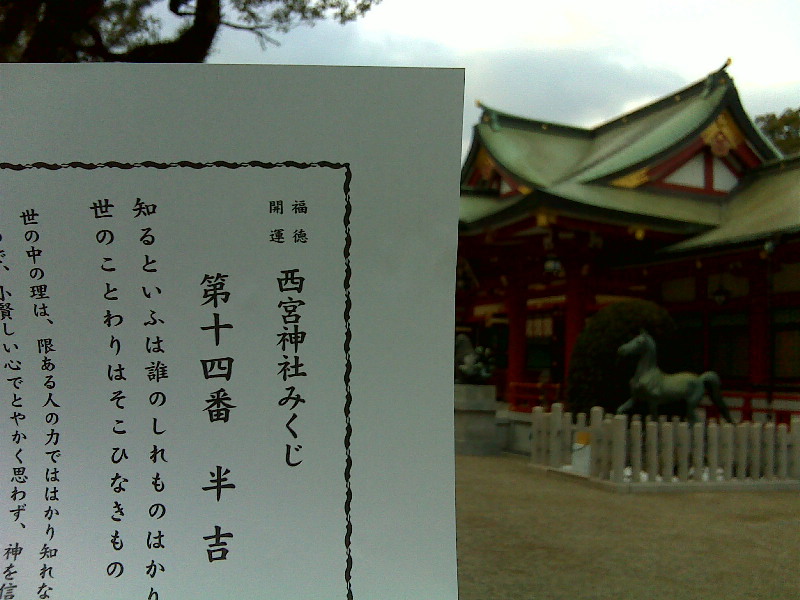 福徳
開運
西宮神社みくじ
第十四番 半吉
知るといふは誰のしれものはかり
世のことわりはそこひなきもの
世の中の理は、限ある人の力でははかり知れな
で、小賢しい心でとやかく思わず、神を信